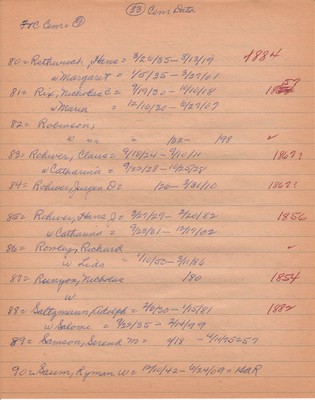 (33) Cem Data
FTC Cem = ①
80 = Rothwisch, Hans = 3/20/35 - 3/13/19 1884
w Margaret = 1/5/35 - 3/27/01
81 = Rix, Nicholas C = 7/19/30 - 10/10/18 57
w Maria = 12/10/20 - 6/27/07
82 = Robinson,
w = /22 - /98
83 = Rohwer, Claus = 9/18/24 - 9/10/11 1867?
w Catharina = 9/23/28 - 10/20/28
84 = Rohwer, Jurgen D = /26 - 3/21/10 1867?
85 = Rohwer, Hans J = 3/27/27 - 3/20/82 1856
w Catharina = 9/23/21 - 12/17/02
86 = Romlig, Richard
w Lida = 7/10/52 - 3/1/86
87 = Runyon, Nicholas /80 1854
w
88 = Saltzmann, Lidolph = 2/6/30 - 1/15/81 1882
w Salome = 7/22/35 - 2/14/99
89 = Samson, Sorend M = 4/18 - 4/14/95=57
90 = Saum, Hyman W = 12/10/42 - 6/24/09 = GAR